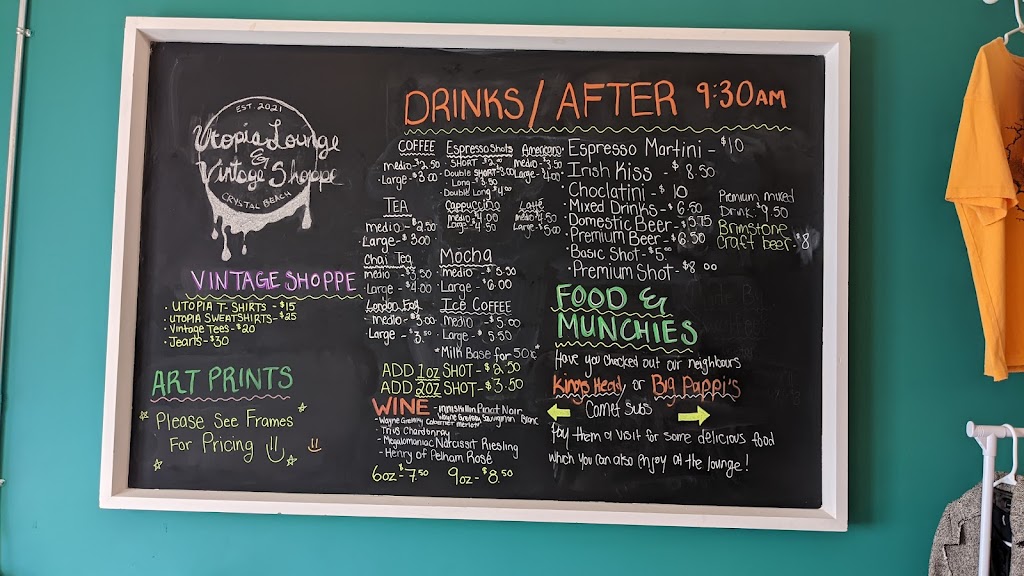 EST 2021
Utopia Lounge
&
Vintage Shoppe
CRYSTAL BEACH
VINTAGE SHOPPE
· UTOPIA T-SHIRTS - $15
· UTOPIA SWEATSHIRTS - $25
· Vintage Tees - $20
· Jeans - $30
ART PRINTS
Please See Frames
For Pricing
DRINKS/AFTER 9:30AM
COFFEE
medio - $2.50
Large - $3.00
TEA
medio - $2.50
Large - $3.00
Chai Tea
medio - $3.50
Large - $4.00
London Fog
medio - $3.00
Large - $3.50
Espresso Shots
SHORT $2.50
Double SHORT - 3.00
Long - $3.50
Double Long $4.00
Cappuccino
medio $4.00
Large $4.50
Americano
medio - $3.50
Large - $4.00
Latte
medio $4.50
Large - $5.00
Mocha
medio - $5.50
Large - $6.00
Ice COFFEE
Medio - $5.00
Large - $5.50
*Milk Base for 50¢*
ADD 1oz SHOT - $2.50
ADD 2oz SHOT - $3.50
WINE - Inniskillin Pinot Noir
- Wayne Gretzky Sauvignon Blanc
- Wayne Gretzky Cabernet merlot
- Trius Chardonnay
- Megalomaniac Narcissist Riesling
- Henry of Pelham Rosé
6oz - $7.50 9oz - $8.50
· Espresso Martini - $10
· Irish Kiss - $8.50
· Choclatini - $10
· Mixed Drinks - $6.50
· Domestic Beer - $5.75
· Premium Beer - $6.50
· Basic Shot - $5.00
· Premium Shot - $8.00
Premium mixed
Drink $9.50
Brimstone
Craft beer - $8
FOOD &
MUNCHIES
Have you checked out our neighbours
Kings Head or Big Pappi's
Gamet Subs
Pay them a visit for some delicious food
which you can also enjoy at the lounge!